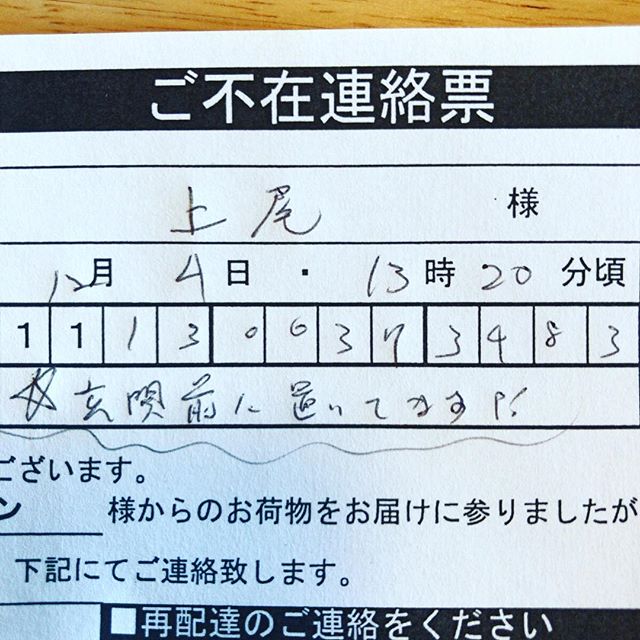 ご不在連絡票
上尾 様
12月 4日 ・ 13時 20分頃
1 1 1 3 0 0 3 7 3 4 8 3
☆玄関前に置いてます!!
ございます。
ン 様からのお荷物をお届けに参りましたが
下記にてご連絡致します。
■再配達のご連絡をください